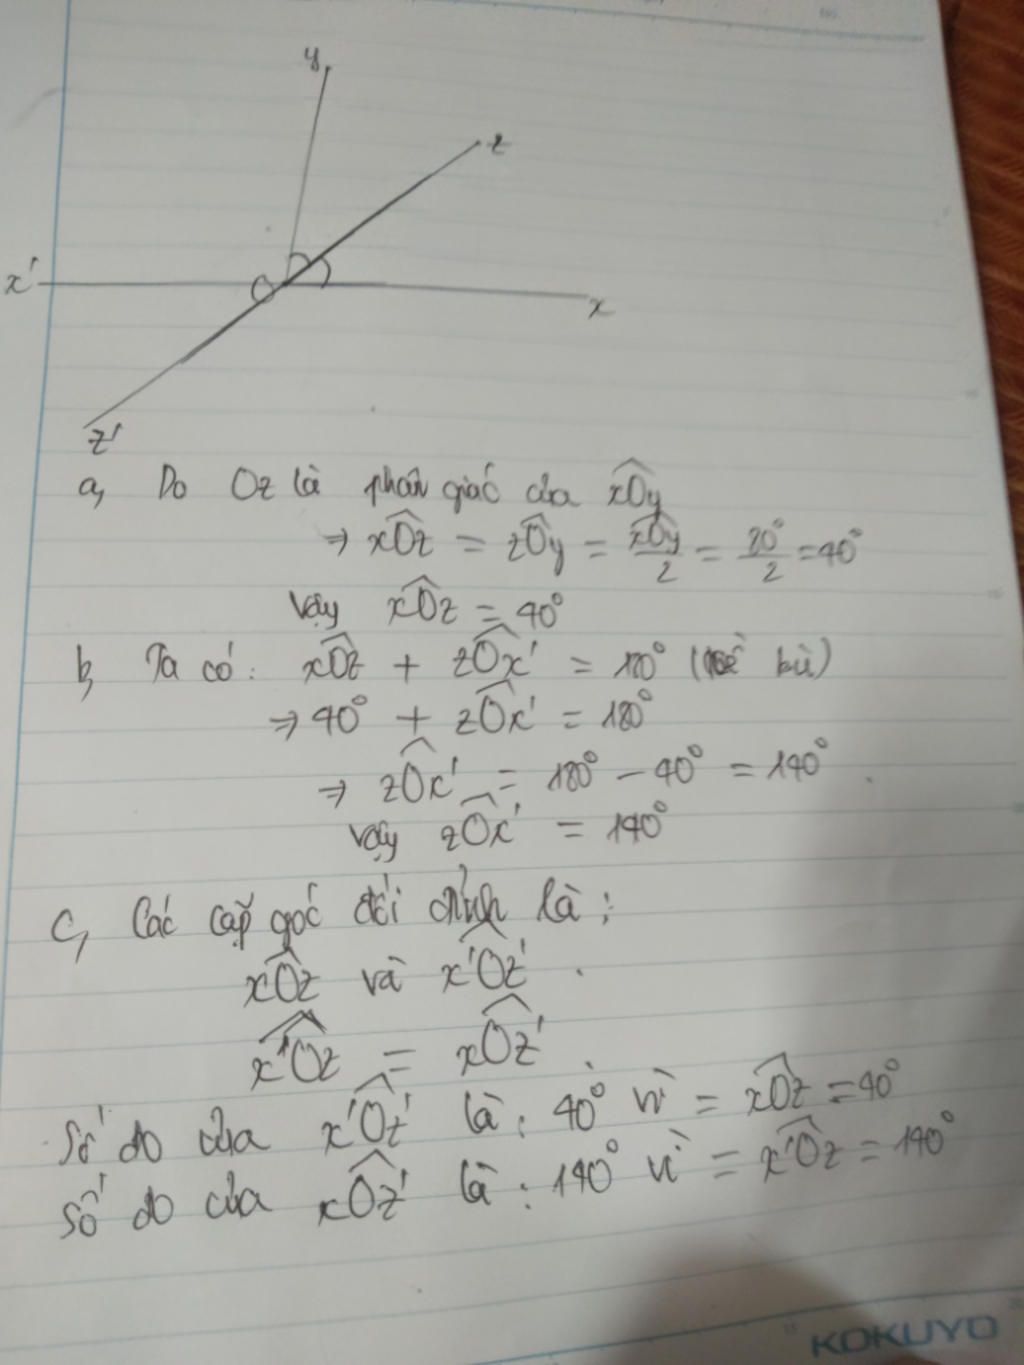 y
z
x'
O
x
z'
a, Do Oz là phân giác của xOy
⇒ xOz = zOy = xOy/2 = 80°/2 = 40°
Vậy xOz = 40°
b, Ta có: xOz + zOx' = 180° (kề bù)
⇒ 40° + zOx' = 180°
⇒ zOx' = 180° - 40° = 140°.
Vậy zOx' = 140°
c, Các cặp góc đối đỉnh là:
xOz và x'Oz'.
x'Oz = xOz'.
Số đo của x'Oz' là: 40° vì = xOz = 40°
Số đo của xOz' là: 140° vì = x'Oz = 140°
KOKUYO